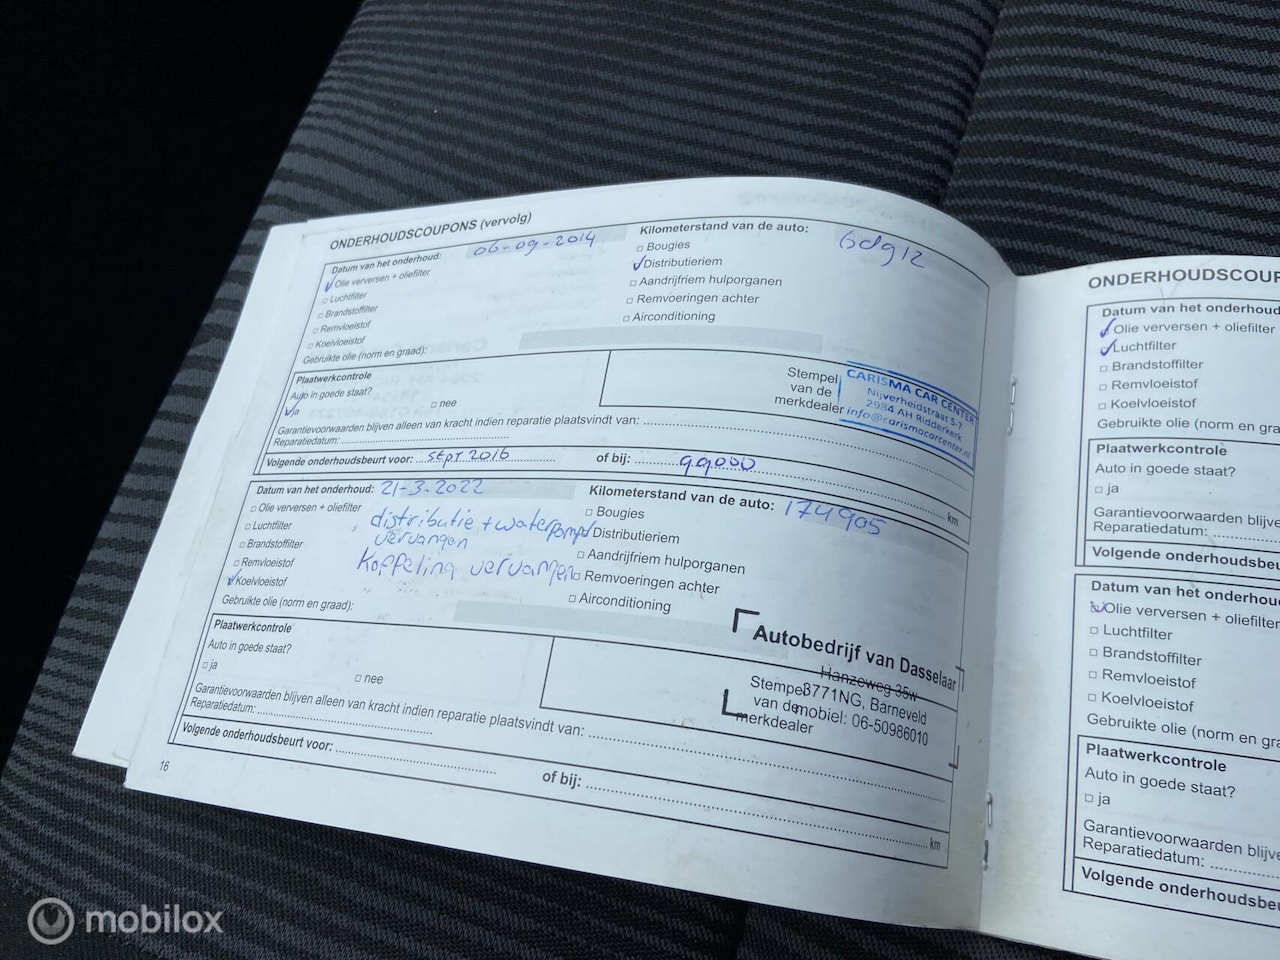 ONDERHOUDSCOUPONS (vervolg)
Datum van het onderhoud: 06-09-2014
Olie verversen + oliefilter
Luchtfilter
Brandstoffilter
Remvloeistof
Koelvloeistof
Gebruikte olie (norm en graad):
Kilometerstand van de auto:
Bougies
Distributieriem
Aandrijfriem hulporganen
Remvoeringen achter
Airconditioning
Plaatwerkcontrole
Auto in goede staat?
ja
nee
Stempel
van de
merkdealer
CARISMA CAR CENTER
Nijverheidstraat 5-7
2984 AH Ridderkerk
info@carismacarcenter.nl
Garantievoorwaarden blijven alleen van kracht indien reparatie plaatsvindt van:
Reparatiedatum:
Volgende onderhoudsbeurt voor: sept 2016 of bij: 99000 km
Datum van het onderhoud: 21-3-2022
Olie verversen + oliefilter
Luchtfilter
Brandstoffilter
Remvloeistof
Koelvloeistof
Gebruikte olie (norm en graad):
distributie + waterpomp
vervangen
Koppeling vervangen
Kilometerstand van de auto: 174905
Bougies
Distributieriem
Aandrijfriem hulporganen
Remvoeringen achter
Airconditioning
Plaatwerkcontrole
Auto in goede staat?
ja
nee
Stempel
van de
merkdealer
Autobedrijf van Dasselaar
Hanzeweg 35w
3771NG, Barneveld
mobiel: 06-50986010
Garantievoorwaarden blijven alleen van kracht indien reparatie plaatsvindt van:
Reparatiedatum:
Volgende onderhoudsbeurt voor:
of bij: km
16
ONDERHOUDSCOUP
Datum van het onderhoud
Olie verversen + oliefilter
Luchtfilter
Brandstoffilter
Remvloeistof
Koelvloeistof
Gebruikte olie (norm en g
Plaatwerkcontrole
Auto in goede staat?
ja
Garantievoorwaarden blijve
Reparatiedatum:
Volgende onderhoudsbeu
Datum van het onderhou
Olie verversen + oliefilter
Luchtfilter
Brandstoffilter
Remvloeistof
Koelvloeistof
Gebruikte olie (norm en gra
Plaatwerkcontrole
Auto in goede staat?
ja
Garantievoorwaarden blijve
Reparatiedatum:
Volgende onderhoudsbeu
mobilox